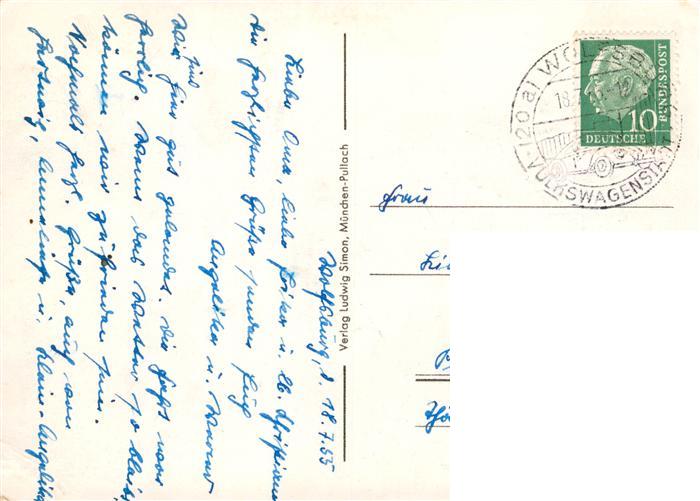 Wolfsburg, d. 18.7.55
Liebe Oma, liebe u. lb.
Die herzlichsten Grüße senden Euch
Angelika u. Werner
Wir sind hier gut gelandet. Die Fahrt war
herrlig. Wenn das Wetter so bleibt
können wir zufrieden sein.
Nochmals herzl. Grüße, auch von
u. Klein-Angelika
Verlag Ludwig Simon, München-Pullach
Frau
(20a) WOLFSBURG
VOLKSWAGENSTADT
18.7.55
DEUTSCHE
BUNDESPOST
10